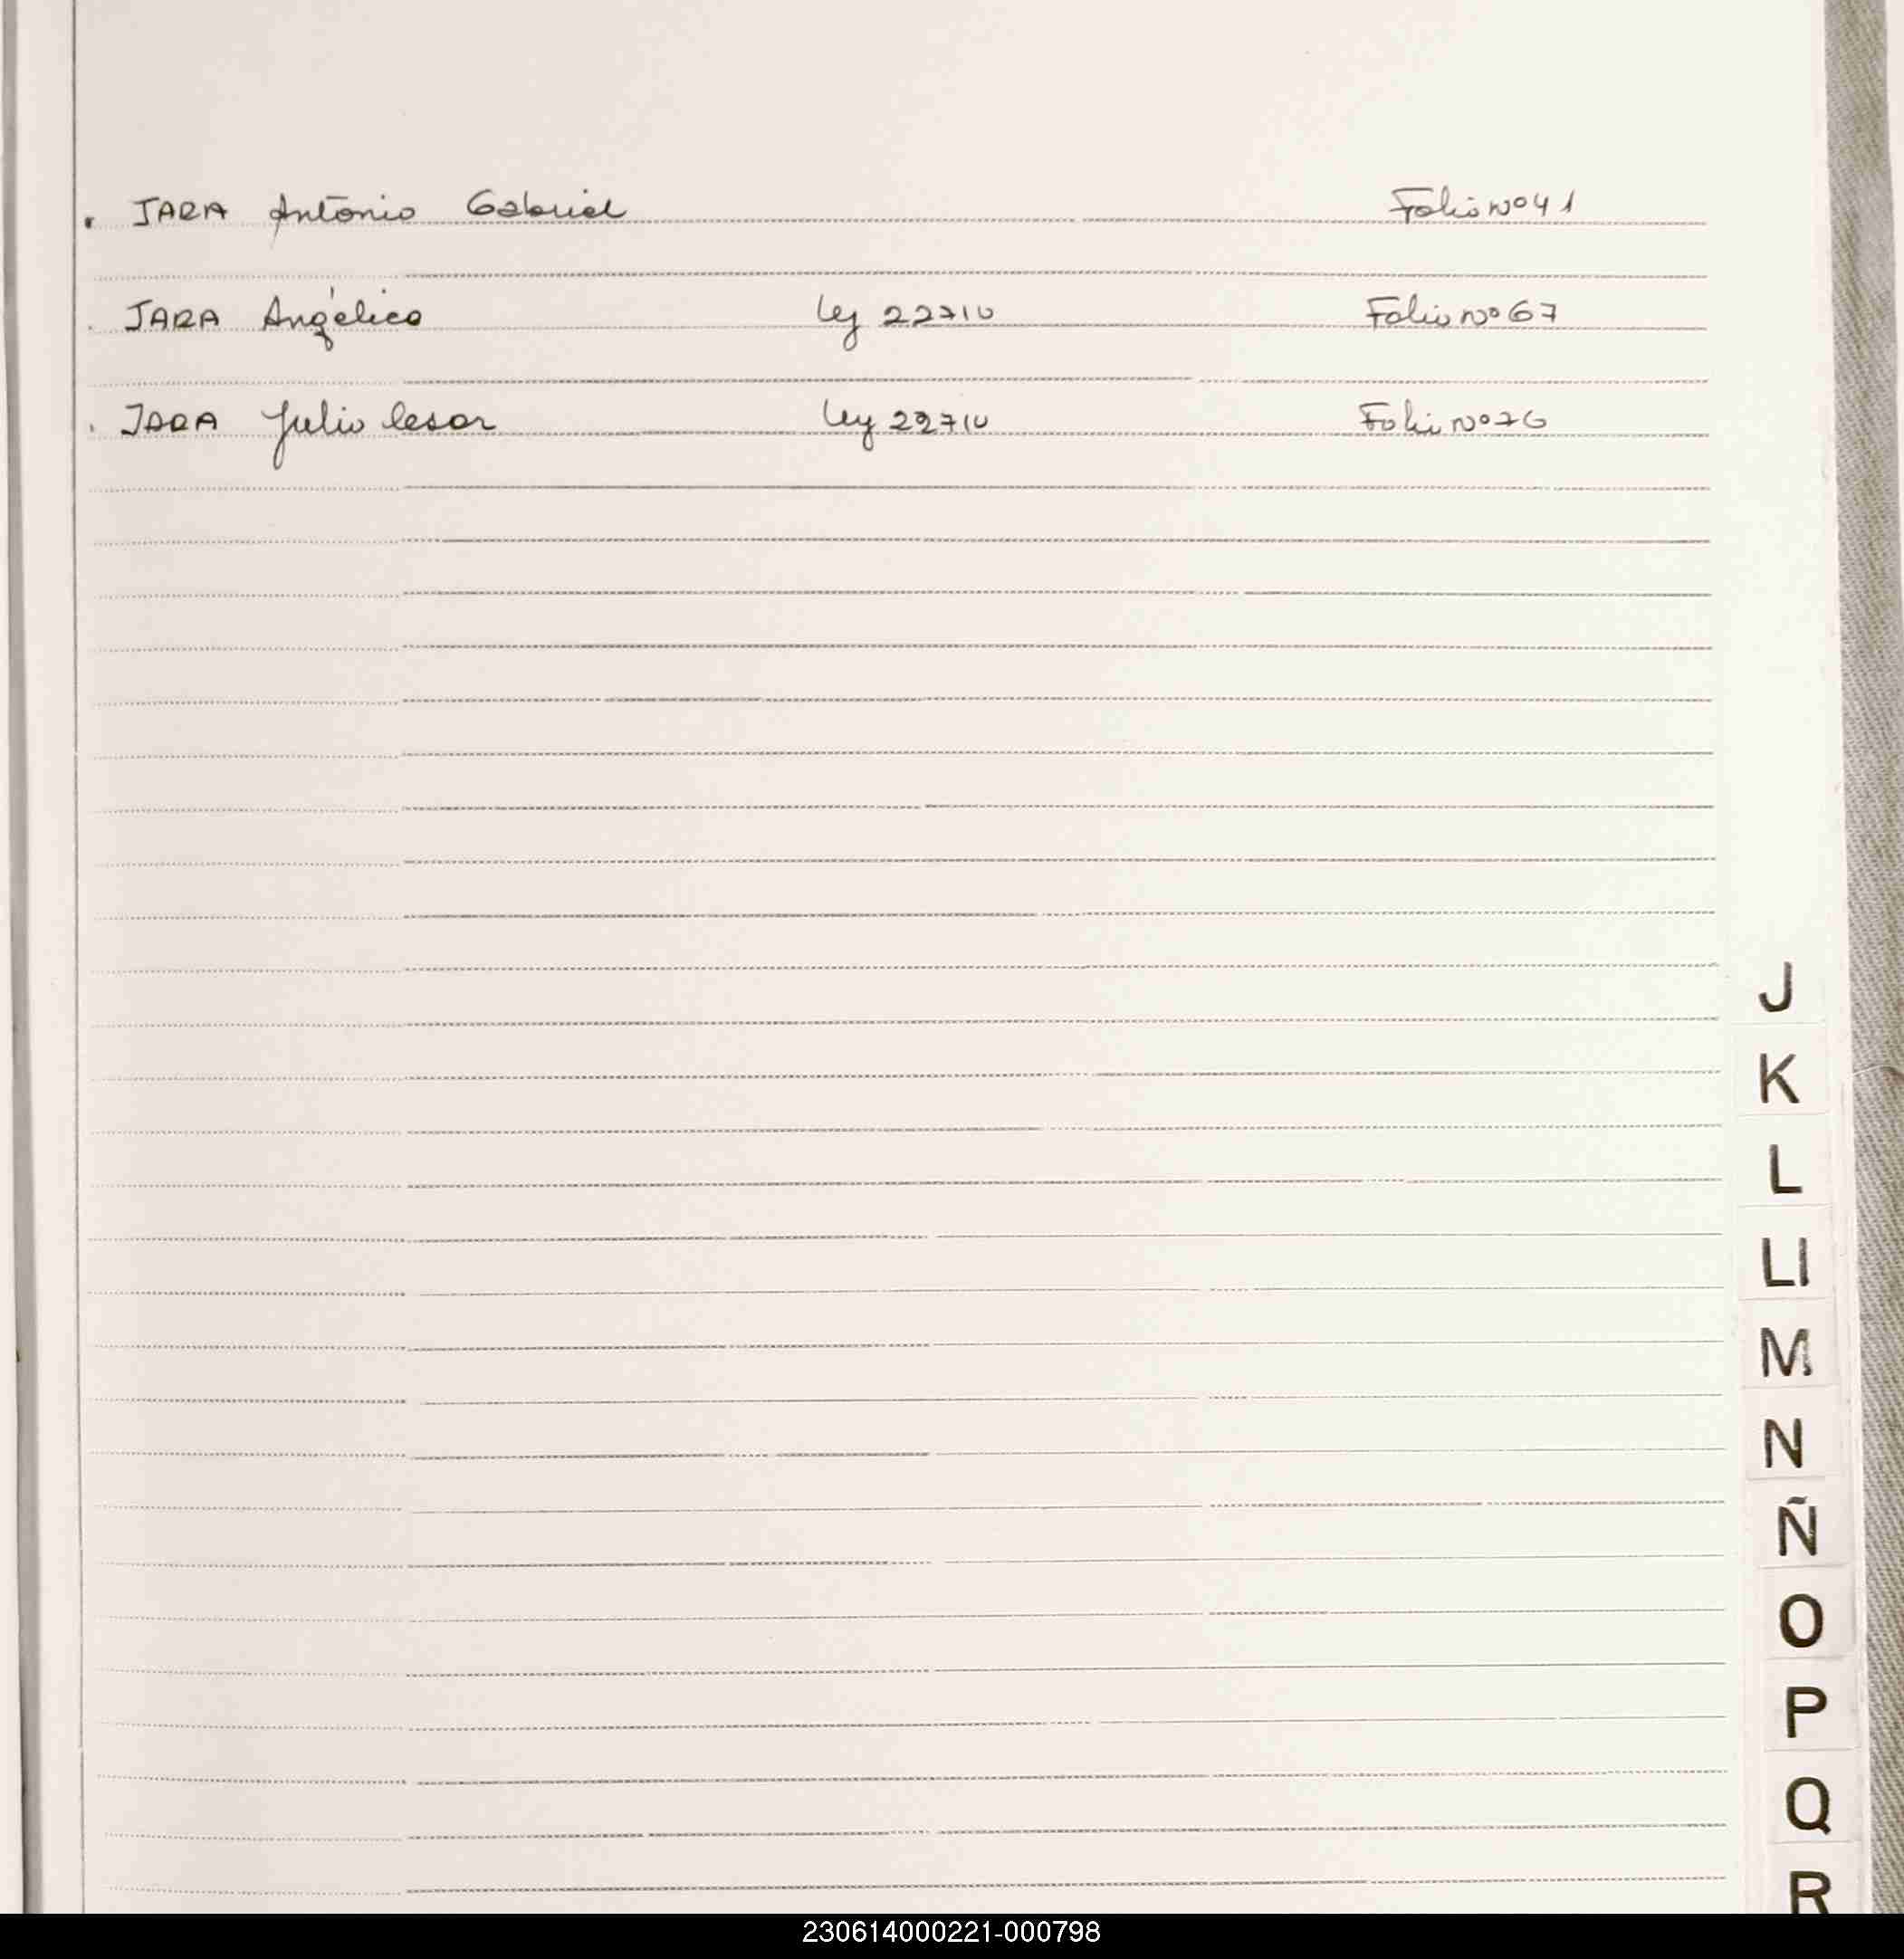 JARA Antonio Gabriel Folio Nº 41
JARA Angélica Ley 22710 Folio Nº 67
JARA Julio Cesar Ley 22710 Folio Nº 76
J
K
L
Ll
M
N
Ñ
O
P
Q
R
230614000221-000798